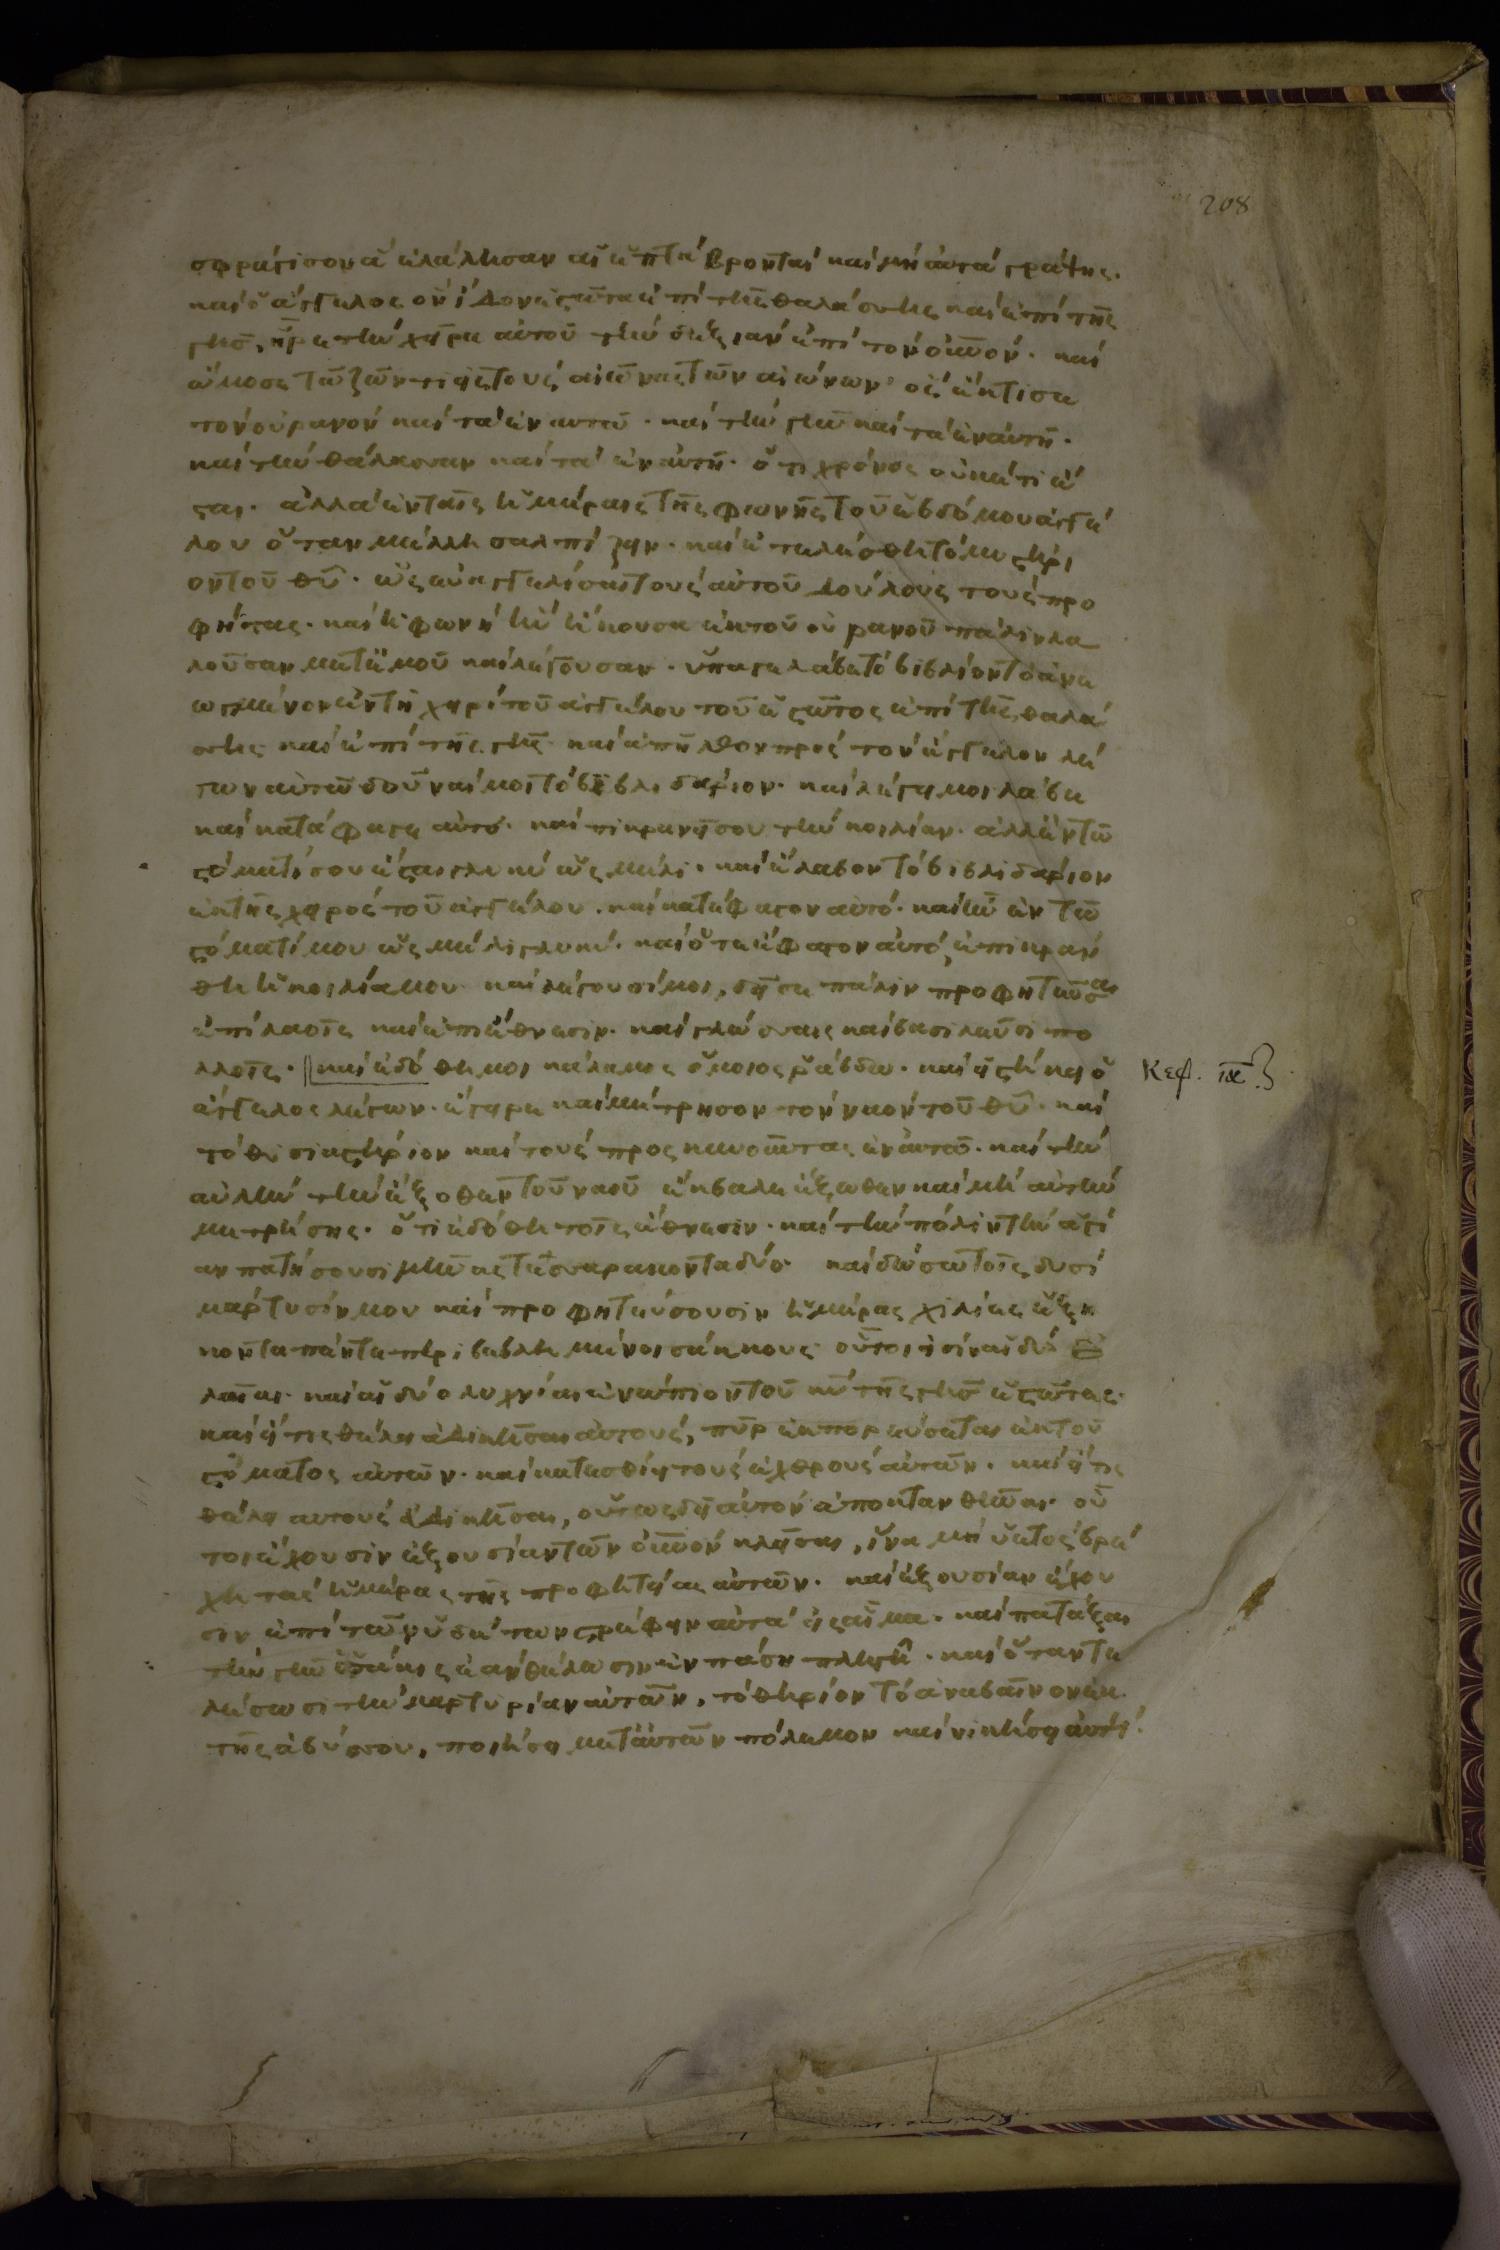 208
σφράγισον ἃ ἐλάλησαν αἱ ἑπτὰ βρονταί καὶ μὴ αὐτὰ γράψης.
καὶ ὁ ἄγγελος ὃν ἴδον ἑστῶτα ἐπὶ τῆς θαλάσσης καὶ ἐπὶ τῆς
γῆς, ἦρε τὴν χεῖρα αὐτοῦ τὴν δεξιὰν ἐπὶ τὸν οὐνον. καὶ
ὤμοσε τῶ ζῶντι εἰς τοὺς αἰῶνας τῶν αἰώνων. ὃς ἔκτισε
τὸν οὐρανὸν καὶ τὰ ἐν αυτῶ. καὶ τὴν γῆν καὶ τὰ ἐν αὐτῆ.
καὶ τὴν θάλασσαν καὶ τὰ ἐν αὐτῆ. ὅτι χρόνος οὐκέτι ἔ
σται. ἀλλὰ ἐν ταῖς ἡμέραις τῆς φωνῆς τοῦ ἑβδόμου ἀγγέ
λου ὅταν μέλλη σαλπίζειν. καὶ ἐτελέσθη τὸ μυστήρι
ον τοῦ θυ. ὡς εὐηγγελίσατο τοὺς αὐτοῦ δούλους τοὺς προ
φήτας. καὶ ἡ φωνὴ ἣν ἤκουσα ἐκ τοῦ οὐρανοῦ πάλιν λα
λοῦσαν μετ ἐμοῦ καὶ λέγουσαν. ὕπαγε λάβε τὸ βιβλίον τὸ ἀνε
ωγμένον ἐν τῆ χειρὶ τοῦ ἀγγέλου τοῦ ἑστῶτος ἐπὶ τῆς θαλά
σσης καὶ ἐπὶ τῆς γῆς. καὶ ἀπῆλθον πρὸς τὸν ἄγγελον λέ
γων αὐτῶ δοῦναί μοι τὸ βιβλιδάριον. καὶ λέγει μοι λάβε
καὶ κατάφαγε αὐτό. καὶ πικρανεῖ σου τὴν κοιλίαν. ἀλλ ἐν τῶ
στόματί σου ἔσται γλυκὺ ὡς μέλι. καὶ ἔλαβον τὸ βιβλιδάριον
ἐκ τῆς χειρὸς τοῦ ἀγγέλου. καὶ κατέφαγον αὐτό. καὶ ἦν ἐν τῶ
στόματί μου ὡς μέλι γλυκύ. καὶ ὅτε ἔφαγον αὐτὸ, ἐπικράν
θη ἡ κοιλία μου. καὶ λέγουσί μοι, δεῖ σε πάλιν προφητεῦσαι
ἐπὶ λαοῖς καὶ ἐπὶ ἔθνεσιν. καὶ γλώσσαις καὶ βασιλεῦσι πο
λλοῖς. καὶ ἐδόθη μοι κάλαμος ὅμοιος ῥάβδω. καὶ εἱστήκει ὁ
Κεφ. ια.
ἄγγελος λέγων. ἔγειρε καὶ μέτρησον τὸν ναὸν τοῦ θυ. καὶ
τὸ θυσιαστήριον καὶ τοὺς προσκυνοῦντας ἐν αὐτῶ. καὶ τὴν
αὐλὴν τὴν ἔξοθεν τοῦ ναοῦ ἔκβαλε ἔξωθεν καὶ μὴ αὐτὴν
μετρήσης. ὅτι ἐδόθη τοῖς ἔθνεσιν. καὶ τὴν πόλιν τὴν ἁγί
αν πατήσουσι μῆνας τεσσαρακοντα δύο. καὶ δώσω τοῖς δυσὶ
μάρτυσίν μου καὶ προφητεύσουσιν ἡμέρας χιλίας ἑξή
κοντα πέντε περιβεβλημένοι σάκκους. οὗτοι εἰσὶν αἱ δύο
λαῖαι. καὶ αἱ δύο λυχνίαι ἐνώπιον τοῦ κυ τῆς γῆς ἑστῶτες.
καὶ εἴ τις θέλει ἀδικῆσαι αὐτοὺς, πῦρ ἐκπορεύσεται ἐκ τοῦ
στόματος αὐτῶν. καὶ κατεσθίει τοὺς ἐχθροὺς αὐτῶν. καὶ εἴ τις
θέλει αυτοὺς ἀδικῆσαι, οὕτως δεῖ αὐτὸν ἀποκτανθῆναι. οὗ
τοι ἔχουσιν ἐξουσίαν τὸν οὐνον κλεῖσαι, ἵνα μὴ ὑετὸς βρέ
χη τὰς ἡμέρας τῆς προφητείας αὐτῶν. καὶ ἐξουσίαν ἔχου
σιν ἐπὶ τῶν ὑδάτων στρέφειν αὐτὰ εἰς αἷμα. καὶ πατάξαι
τὴν γῆν ὁσάκις ἐὰν θέλωσιν ἐν πάση πληγῆ. καὶ ὅταν τε
λέσωσι τὴν μαρτυρίαν αὐτῶν, τὸ θηρίον τὸ ἀναβαῖνον ἐκ
τῆς ἀβύσσου, ποιήσει μετ αὐτῶν πόλεμον καὶ νικήσει αὐτούς.